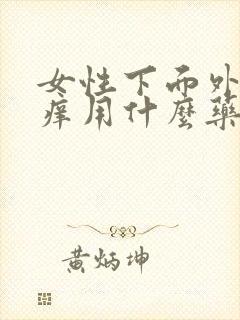 女性下面外
痒用什麼藥
黄炳坤